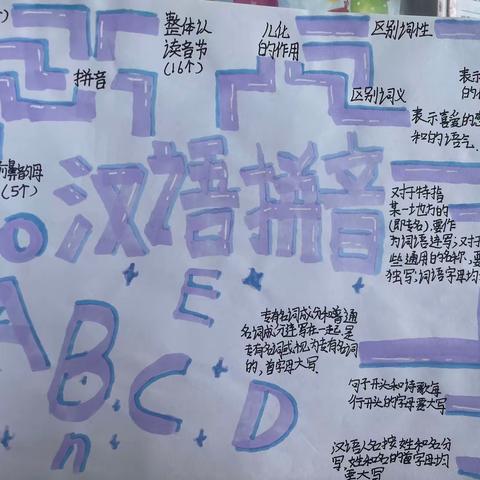 整体认
读音节
(16个)
拼音
儿化
的作用
区别词性
区别词义
表示
表示喜爱的
和的语气
(5个)
汉语拼音
对于特指
某一地方的
(即专名),要作
为词语连写;对于
些通用的名称,要
独写;词语字母均
专有名词成分和普通
名词成分连写在一起,是
专有名词或视为专有名词
的,首字母大写.
句子开头和诗歌每
行开头的字母要大写
汉语人名按姓和名分
写,姓和名的首字母均
要大写
O
A
B
C
D
E
n